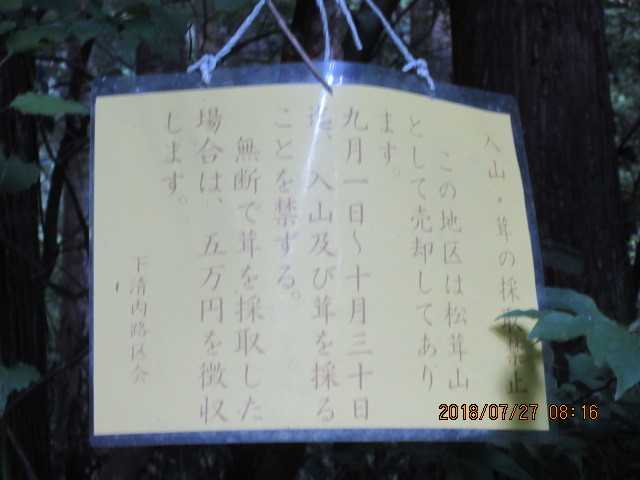 入山・茸の採取禁止
この地区は松茸山
として売却してあり
ます。
九月一日～十月三十日
迄、入山及び茸を採る
ことを禁ずる。
無断で茸を採取した
場合は、五万円を徴収
します。
下清内路区会
2018/07/27 08:16